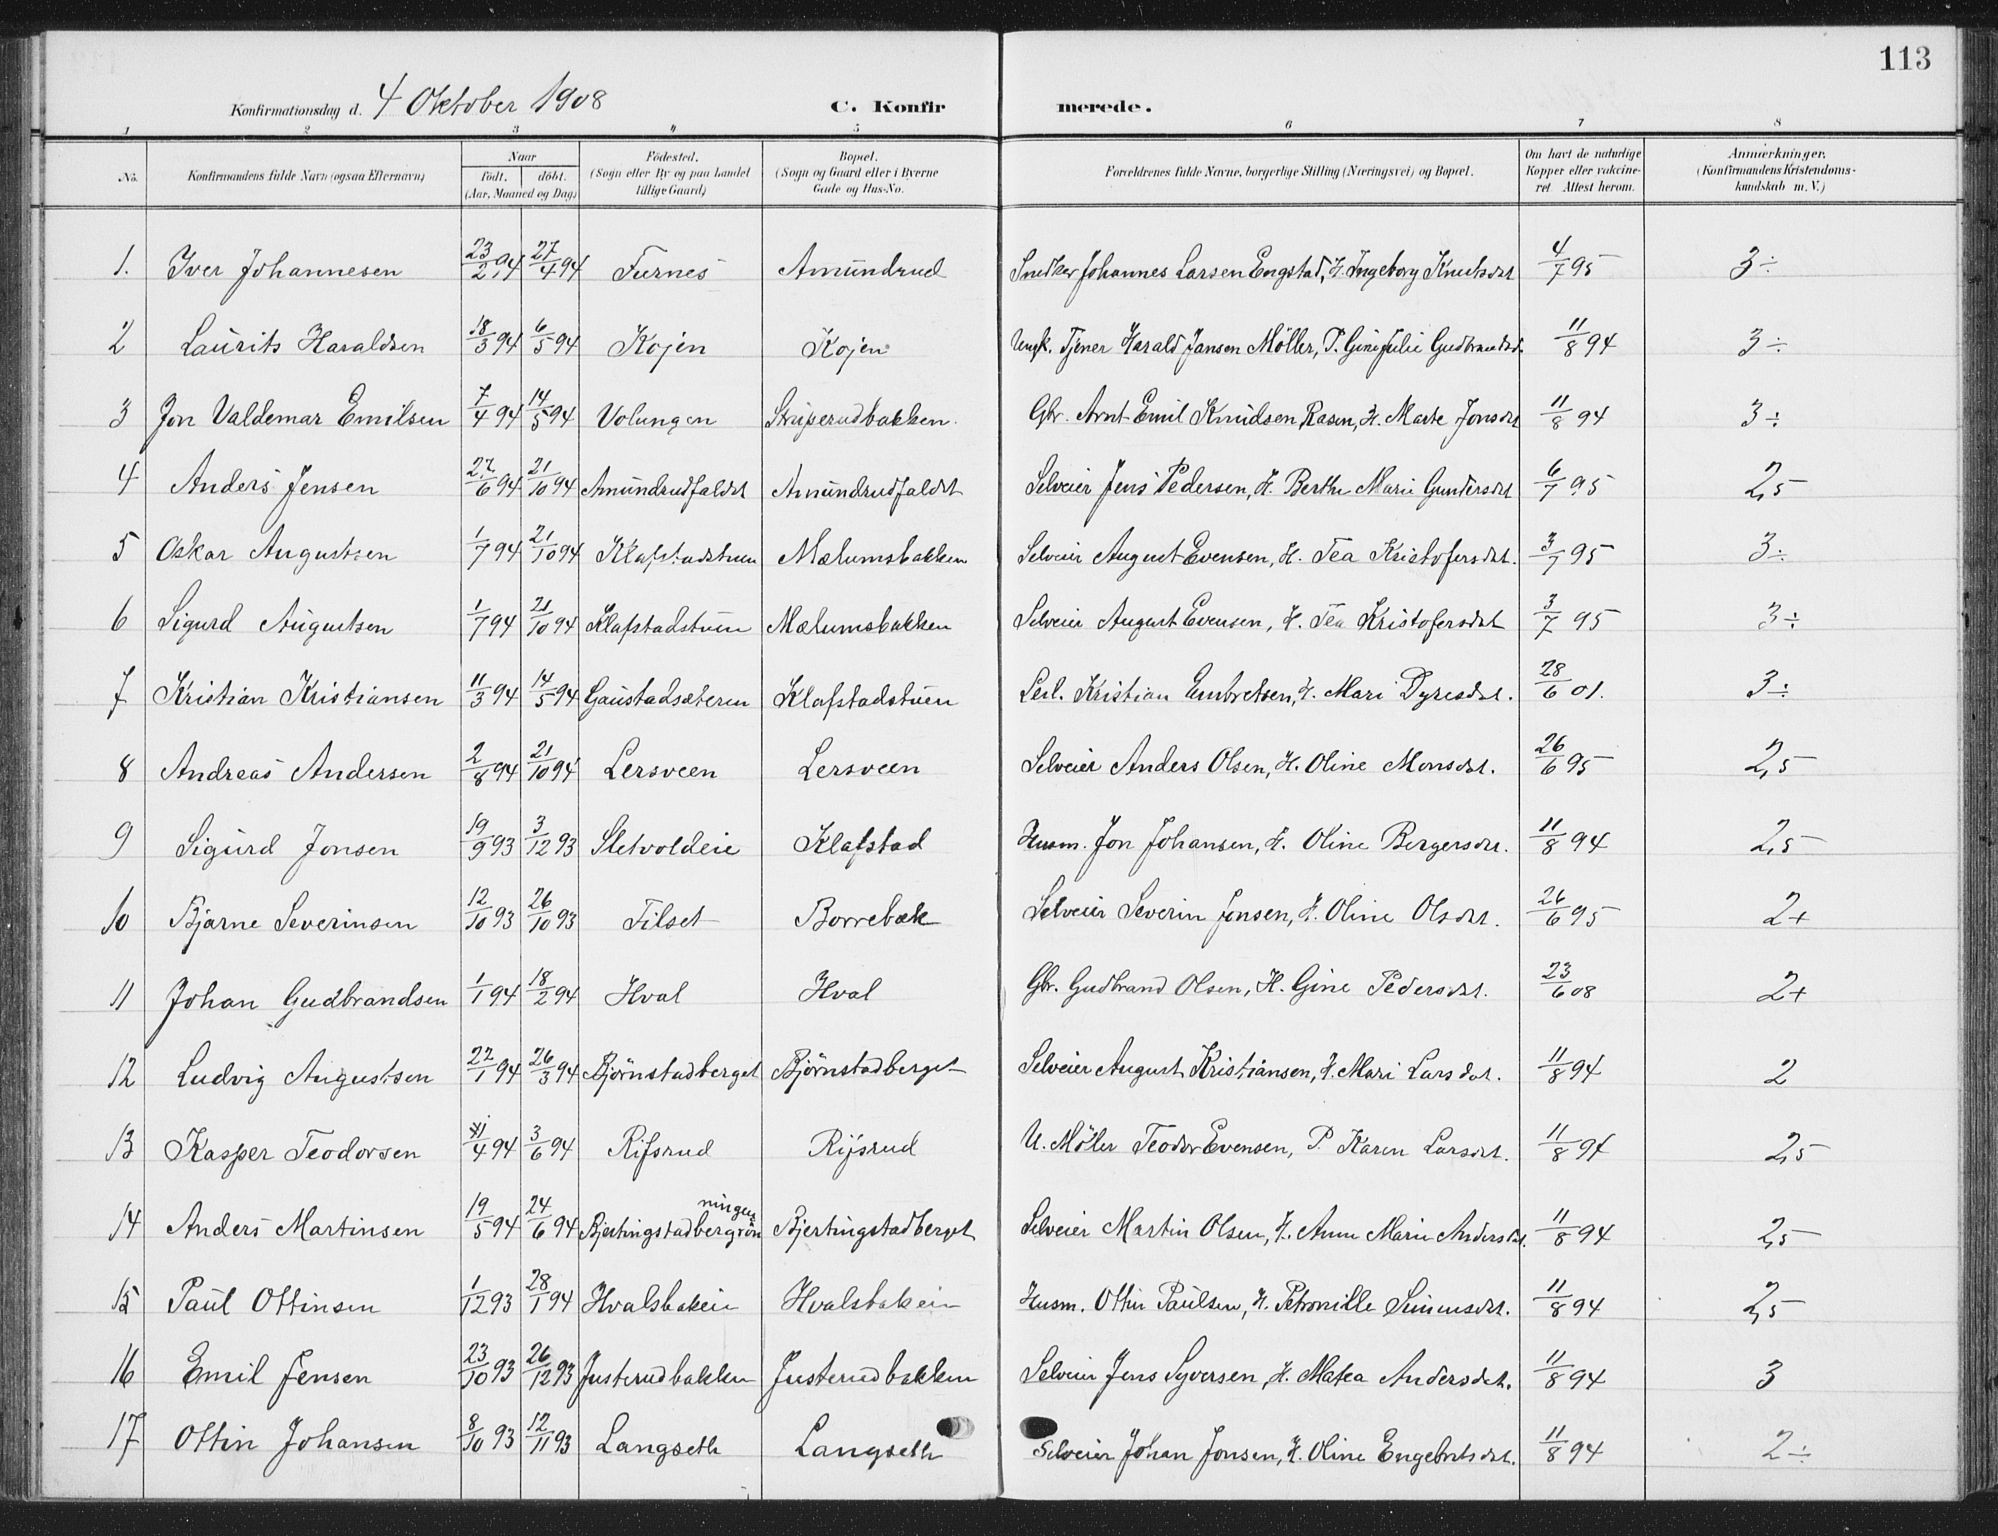 113
Konfirmationsdag d. 4 Oktober 1908 C. Konfirmerede.
1 2 3 4 5 6 7 8
No. Konfirmandens fulde Navn (ogsaa Efternavn) Naar født. døbt. (Aar, Maaned og Dag) Fødested. (Sogn eller By og paa Landet tillige Gaard) Bopæl. (Sogn og Gaard eller i Byerne Gade og Hus-No. Forældrenes fulde Navne, borgerlige Stilling (Næringsvei) og Bopæl. Om havt de naturlige Kopper eller vakcineret. Attest herom. Anmærkninger. (Konfirmandens Kristendomskundskab m. V.)
1. Iver Johannesen 23/2 94 27/4 94 Furnes Amundrud Snedker Johannes Larsen Engstad, H. Ingeborg Knutsdat 4/7 95 3÷
2 Laurits Haraldsen 18/3 94 6/5 94 Kojen Kojen Ungk. Tjener Harald Jansen Möller, P. Gine Julie Gudbrandsd. 11/8 94 3÷
3 Jon Valdemar Emilsen 7/4 94 14/5 94 Volungen Striperudbakken. Gbr. Arnt Emil Knudsen Rasen, H. Marte Jonsdat 11/8 94 3÷
4 Anders Jensen 27/6 94 21/10 94 Amundrudfaldet Amundrudfaldet Selveier Jens Pedersen, H. Berthe Marie Guntersdat 6/7 95 2,5
5 Oskar Augustsen 1/7 94 21/10 94 Klafstadstuen Mælumsbakken Selveier August Evensen, H. Tea Kristofersdat. 3/7 95 3÷
6 Sigurd Augustsen 1/7 94 21/10 94 Klafstadstuen Mælumsbakken Selveier August Evensen, H. Tea Kristofersdat 3/7 95 3÷
7 Kristian Kristiansen 11/3 94 14/5 94 Gaustadsæteren Klafstadstuen Leil. Kristian Embretsen, H. Mari Dyresdat. 28/6 01. 3÷
8 Andreas Andersen 2/8 94 21/10 94 Lersveen Lersveen Selveier Anders Olsen, H. Oline Monsdat. 26/6 95 2,5
9 Sigurd Jonsen 19/9 93 3/12 93 Sletvoldeie Klafstad Husm. Jon Johansen, H. Oline Bergersdat. 11/8 94 2,5
10 Bjarne Severinsen 12/10 93 26/10 93 Filset Borrebæk Selveier Severin Jensen, H. Oline Olsdat. 26/6 95 2+
11 Johan Gudbrandsen 1/1 94 18/2 94 Hval Hval Gbr. Gudbrand Olsen, H. Gine Pedersdat. 23/6 08 2+
12 Ludvig Augustsen 22/1 94 26/3 94 Bjørnstadberget Bjørnstadberget Selveier August Kristiansen, H. Mari Larsdat. 11/8 94 2
13 Kasper Teodorsen 11/4 94 3/6 94 Rifsrud Rifsrud U. Möller Teodor Evensen, P. Karen Larsdat. 11/8 94 2,5
14 Anders Martinsen 19/5 94 24/6 94 Bjertingstadbergrönningen Bjertingstadberget Selveier Martin Olsen, H. Anne Marie Andersdat. 11/8 94 2,5
15 Paul Ottinsen 1/12 93 28/1 94 Hvalsbakeie Hvalsbakeie Husm. Ottin Paulsen, H. Petronille Simensdat. 11/8 94 2,5
16 Emil Jensen 23/10 93 26/12 93 Justerudbakken Justerudbakken Selveier Jens Syversen, H. Matea Andersdat. 11/8 94 3
17 Ottin Johansen 8/10 93 12/11 93 Langseth Langseth Selveier Johan Jonsen, H. Oline Engebretsdat. 11/8 94 2÷